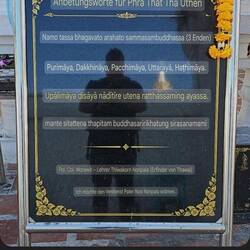 Anbetungsworte für Phra That Tha Uthen
Namo tassa bhagavato arahato sammasambuddhassa (3 Enden)
Purimāya, Dakkhināya, Pacchimāya, Uttarāya, Haṭhimāya.
Upālimāya disāya nāditire utena ratthassaming ayassa.
mante sitattena thapitam buddhasaririkhatung sirasanamani
Pol. Col. Worawit – Lehrer Thiwakorn Nonpala (Erfinder von Thawai)
Ich möchte den Verdienst Pater Noo Nonpala widmen.